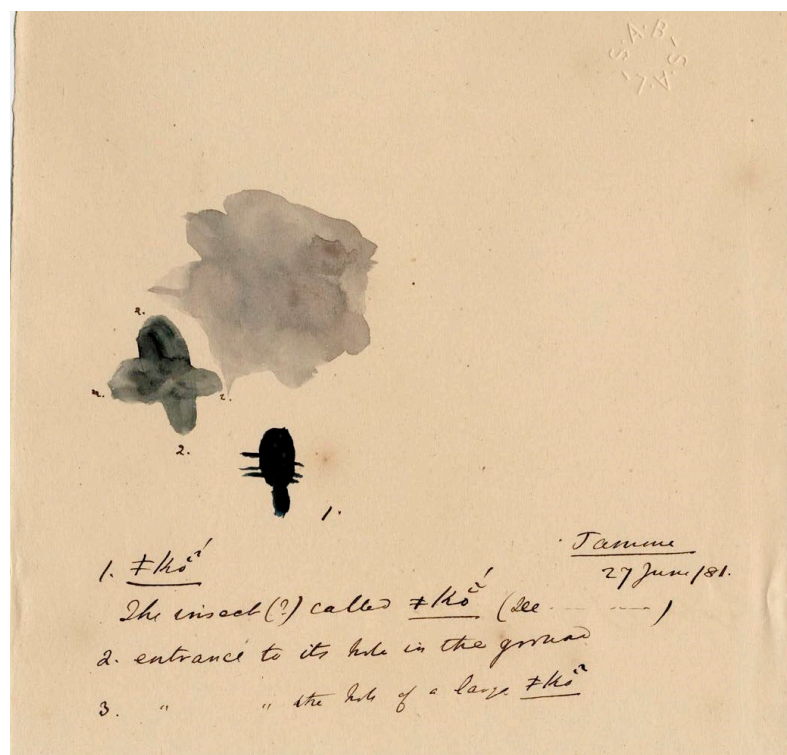 S·A·B·S·A·L·
2.
2.
2.
1.
Tamme
27 June/81.
1. ǂko᷉́
The insect (?) called ǂko᷉́ (See ............)
2. entrance to its hole in the ground
3. " " the hole of a large ǂko᷉